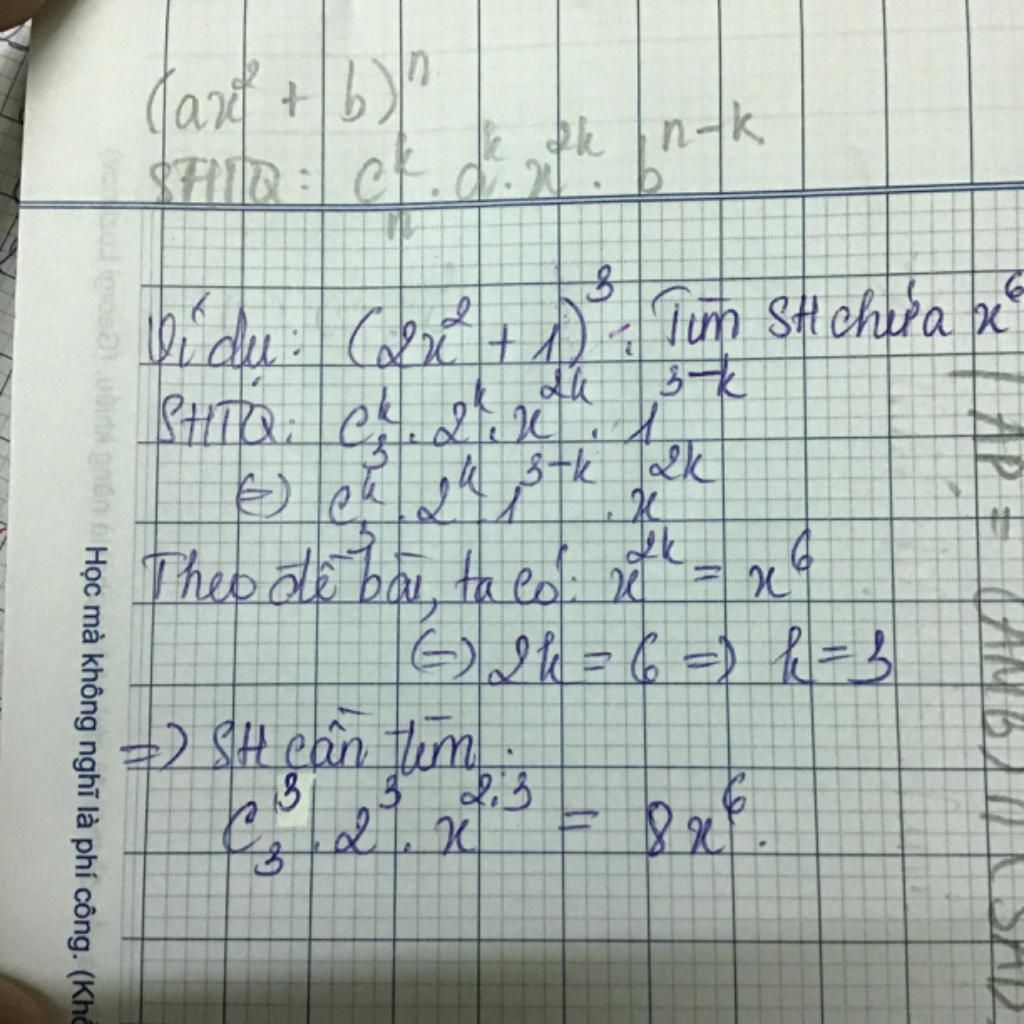 (ax² + b)ⁿ
SHTQ: Cₙᵏ . aᵏ . x²ᵏ . bⁿ⁻ᵏ
Ví dụ: (2x² + 1)³ : Tìm SH chứa x⁶
SHTQ: C₃ᵏ . 2ᵏ . x²ᵏ . 1³⁻ᵏ
(=) C₃ᵏ . 2ᵏ 1³⁻ᵏ . x²ᵏ
Theo đề bài, ta có: x²ᵏ = x⁶
(=) 2k = 6 => k = 3
=> SH cần tìm :
C₃³ . 2³ . x²·³ = 8x⁶.
Học mà không nghĩ là phí công. (Khổ